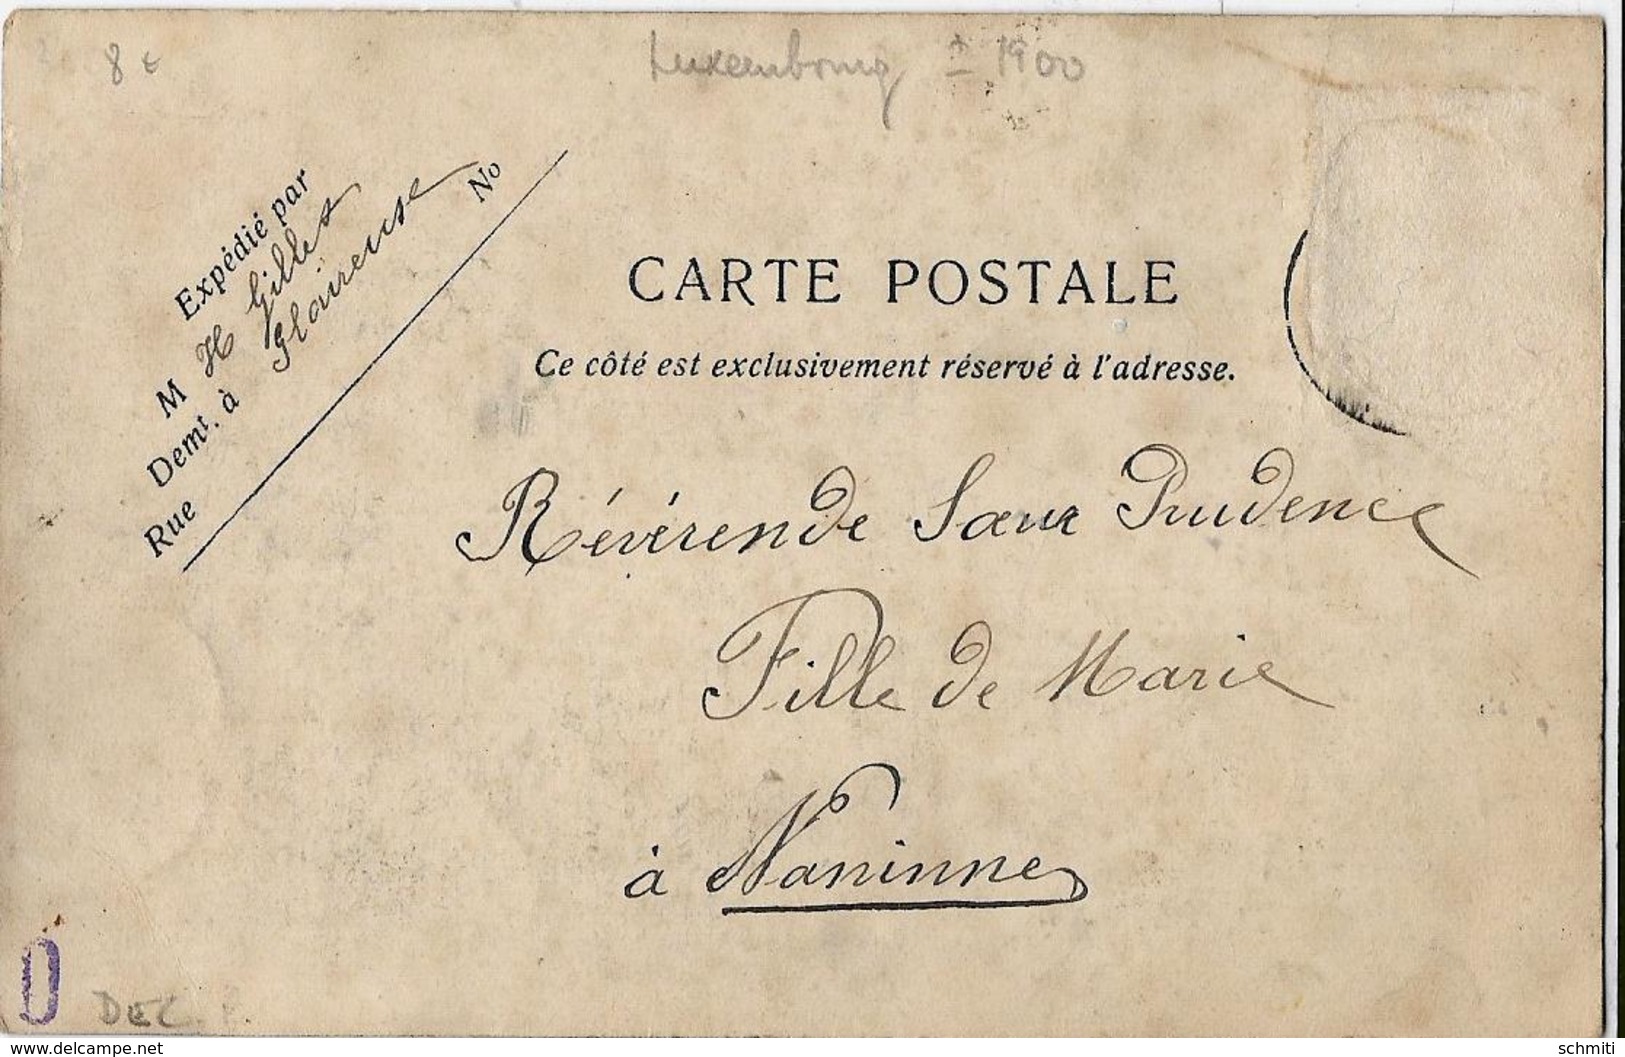 8 €
Luxembourg ± 1900
Expédié par
M H Gilles
Demt. à Glaireuse
Rue No
CARTE POSTALE
Ce côté est exclusivement réservé à l'adresse.
Révérende Sœur Prudence
Fille de Marie
à Naninne
0
DEC.
www.delcampe.net
schmiti